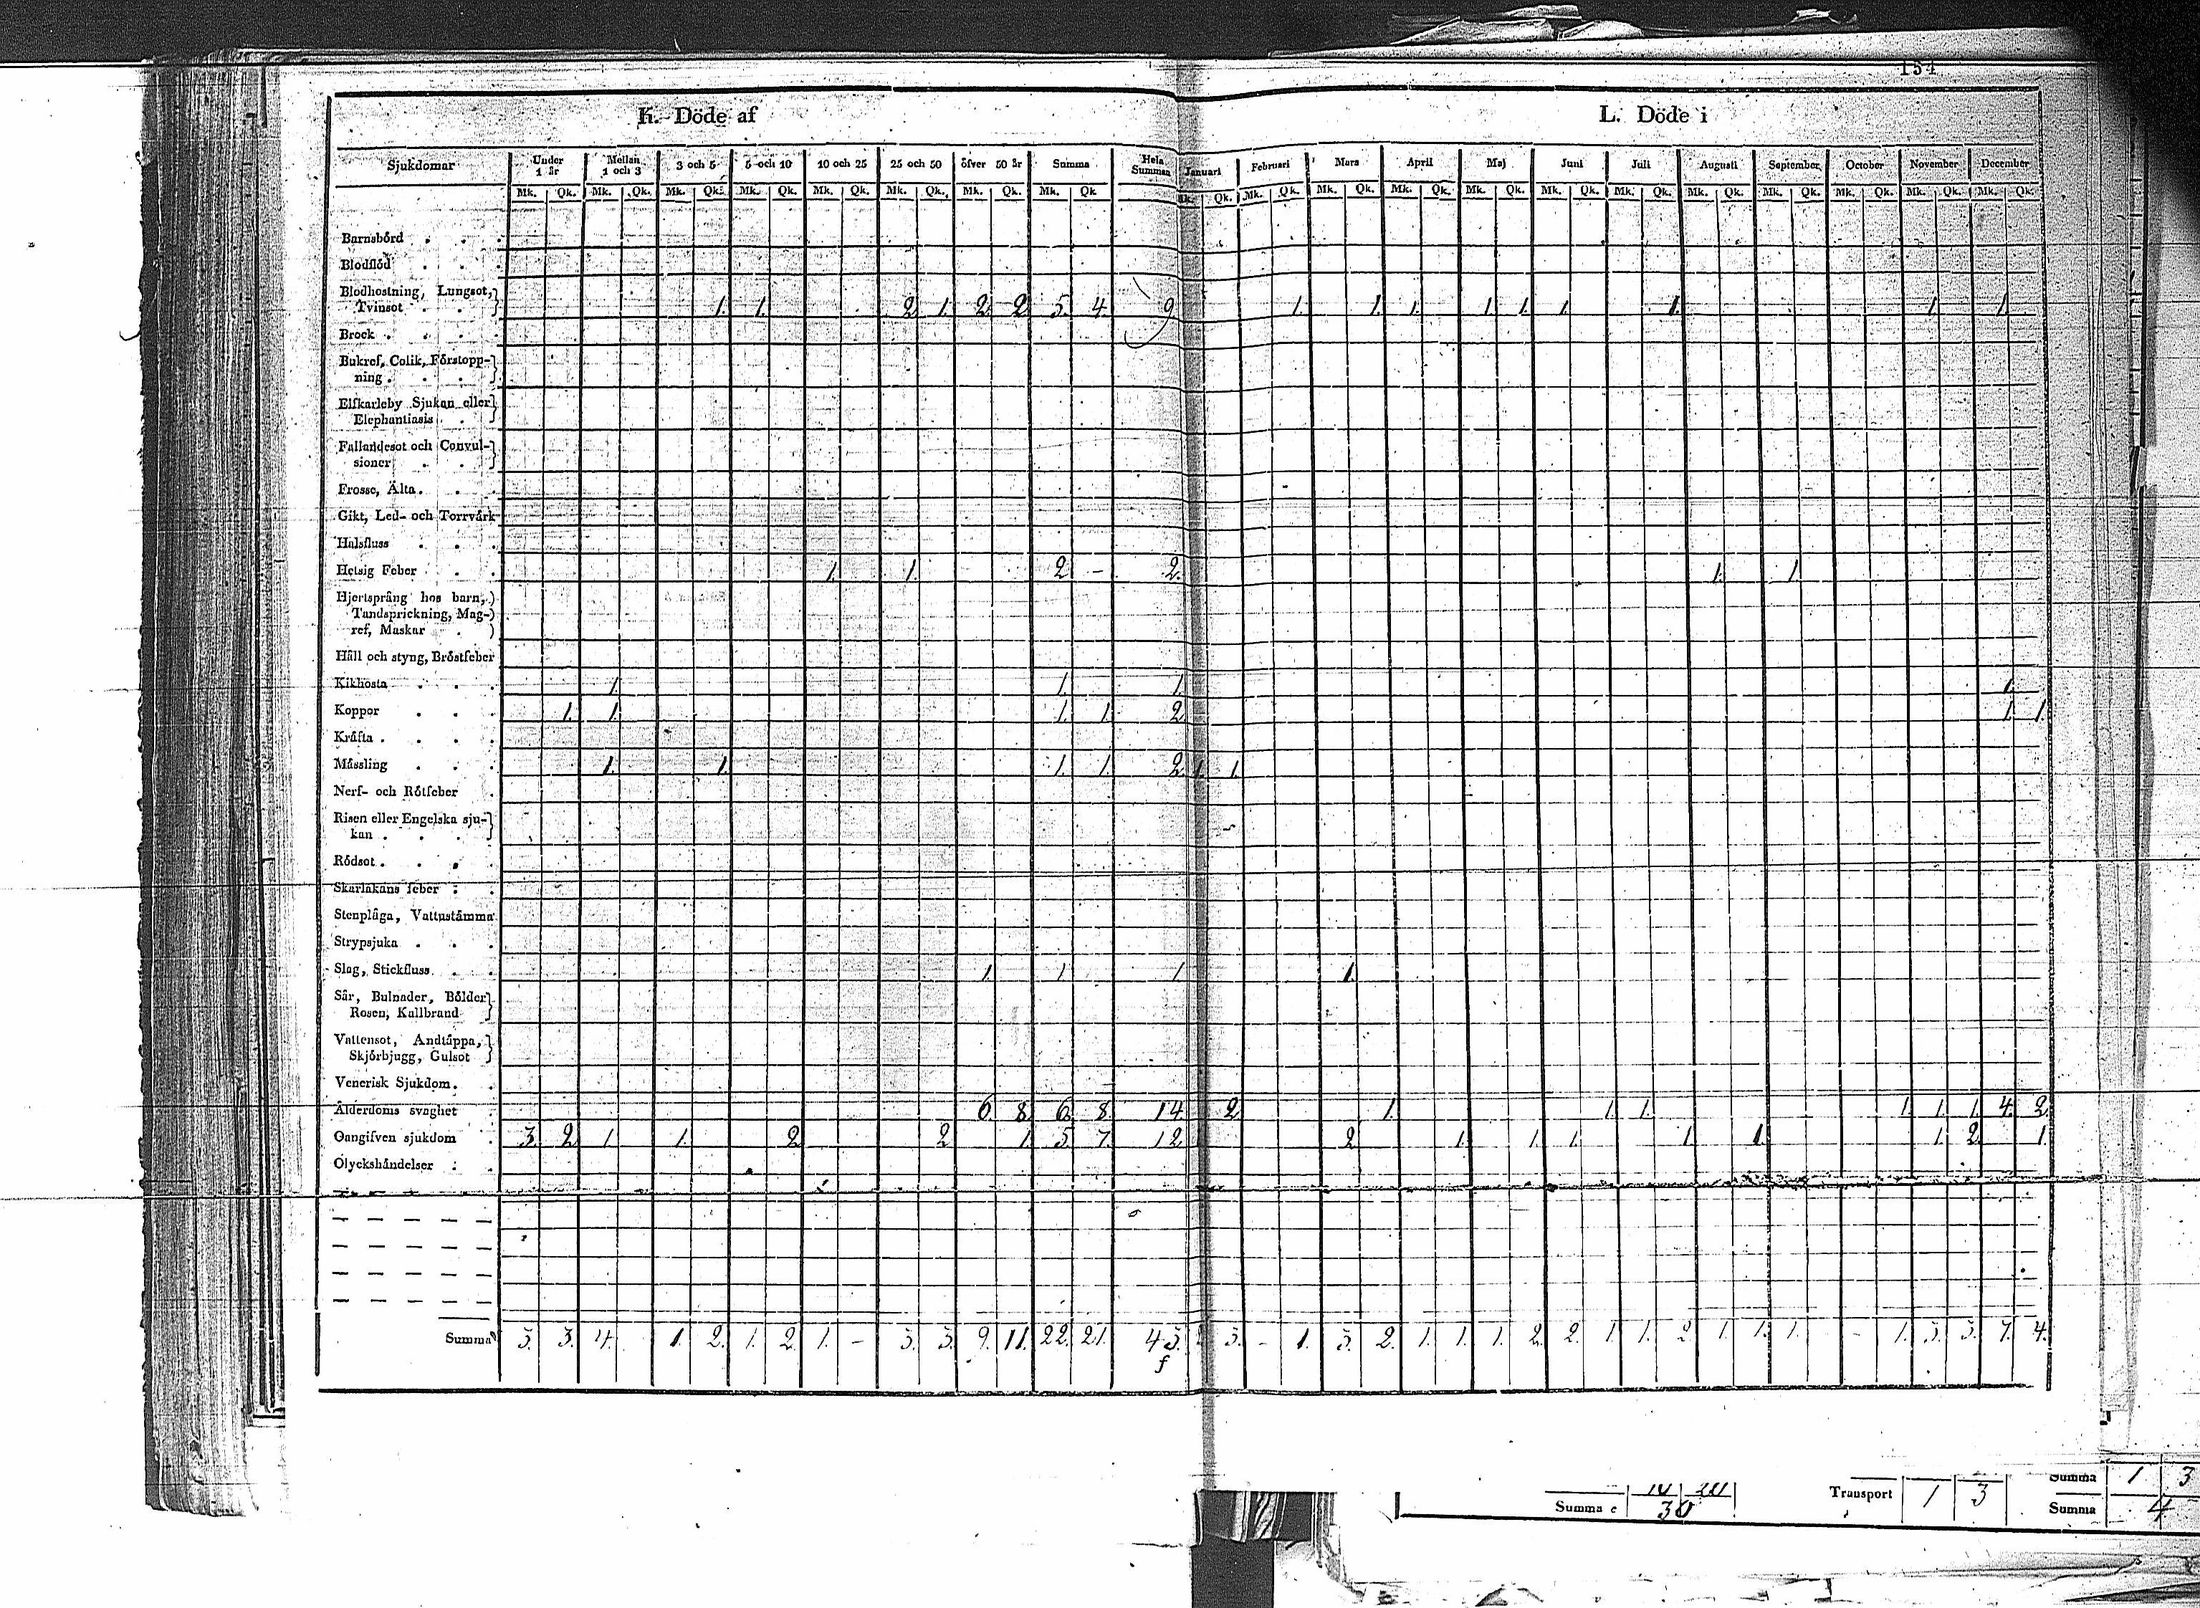 154
K. Döde af
L. Döde i
Sjukdomar Under 1 år Mellan 1 och 3 3 och 5 5 och 10 10 och 25 25 och 50 öfver 50 år Summa Hela Summan Januari Februari Mars April Maj Juni Juli Augusti September October November December
Mk. Qk. Mk. Qk. Mk. Qk. Mk. Qk. Mk. Qk. Mk. Qk. Mk. Qk. Mk. Qk. Mk. Qk. Mk. Qk. Mk. Qk. Mk. Qk. Mk. Qk. Mk. Qk. Mk. Qk. Mk. Qk. Mk. Qk. Mk. Qk. Mk. Qk. Mk. Qk.
Barnsbörd . . .
Blodflöd . . .
Blodhostning, Lungsot,
Tvinsot . . 1. 1. 2. 1. 2. 2. 5. 4. 9. 1. 1. 1. 1. 1. 1. 1. 1. 1.
Brock . . .
Bukref, Colik, Förstopp-
ning . . .
Elfkarleby Sjukan eller
Elephantiasis .
Fallandesot och Convul-
sioner . .
Frosse, Älta . . .
Gikt, Led- och Torrvärk
Halsfluss . . .
Hetsig Feber . . . 1. 1. 2. - 2. 1. 1.
Hjertsprång hos barn,
Tandsprickning, Mag-
ref, Maskar .
Håll och styng, Bröstfeber
Kikhosta . . . 1. 1. 1. 1.
Koppor . . . 1. 1. 1. 1. 2. 1. 1.
Kräfta . . . .
Mässling . . . 1. 1. 1. 1. 2. 1. 1.
Nerf- och Rötfeber .
Risen eller Engelska sju-
kan . . .
Rödsot . . . .
Skarlakans feber . .
Stenplåga, Vattustämma
Strypsjuka . . .
Slag, Stickfluss . . 1. 1. 1. 1.
Sår, Bulnader, Bölder
Rosen, Kallbrand
Vattensot, Andtäppa,
Skjörbjugg, Gulsot
Venerisk Sjukdom . .
Ålderdoms svaghet . 6. 8. 6. 8. 14. 2. 1. 1. 1. 1. 1. 1. 4. 2.
Oangifven sjukdom . 3. 2. 1. 1. 2. 2. 1. 5. 7. 12. 2. 1. 1. 1. 1. 1. 1. 2. 1.
Olyckshändelser . .
Summa 3. 3. 4. 1. 2. 1. 2. 1. - 3. 3. 9. 11. 22. 21. 43. 3. - 1. 3. 2. 1. 1. 1. 2. 2. 1. 1. 2. 1. 1. 1. - 1. 3. 3. 7. 4.
Summa 1 3
Transport 1 3
Summa c 30
Summa 4